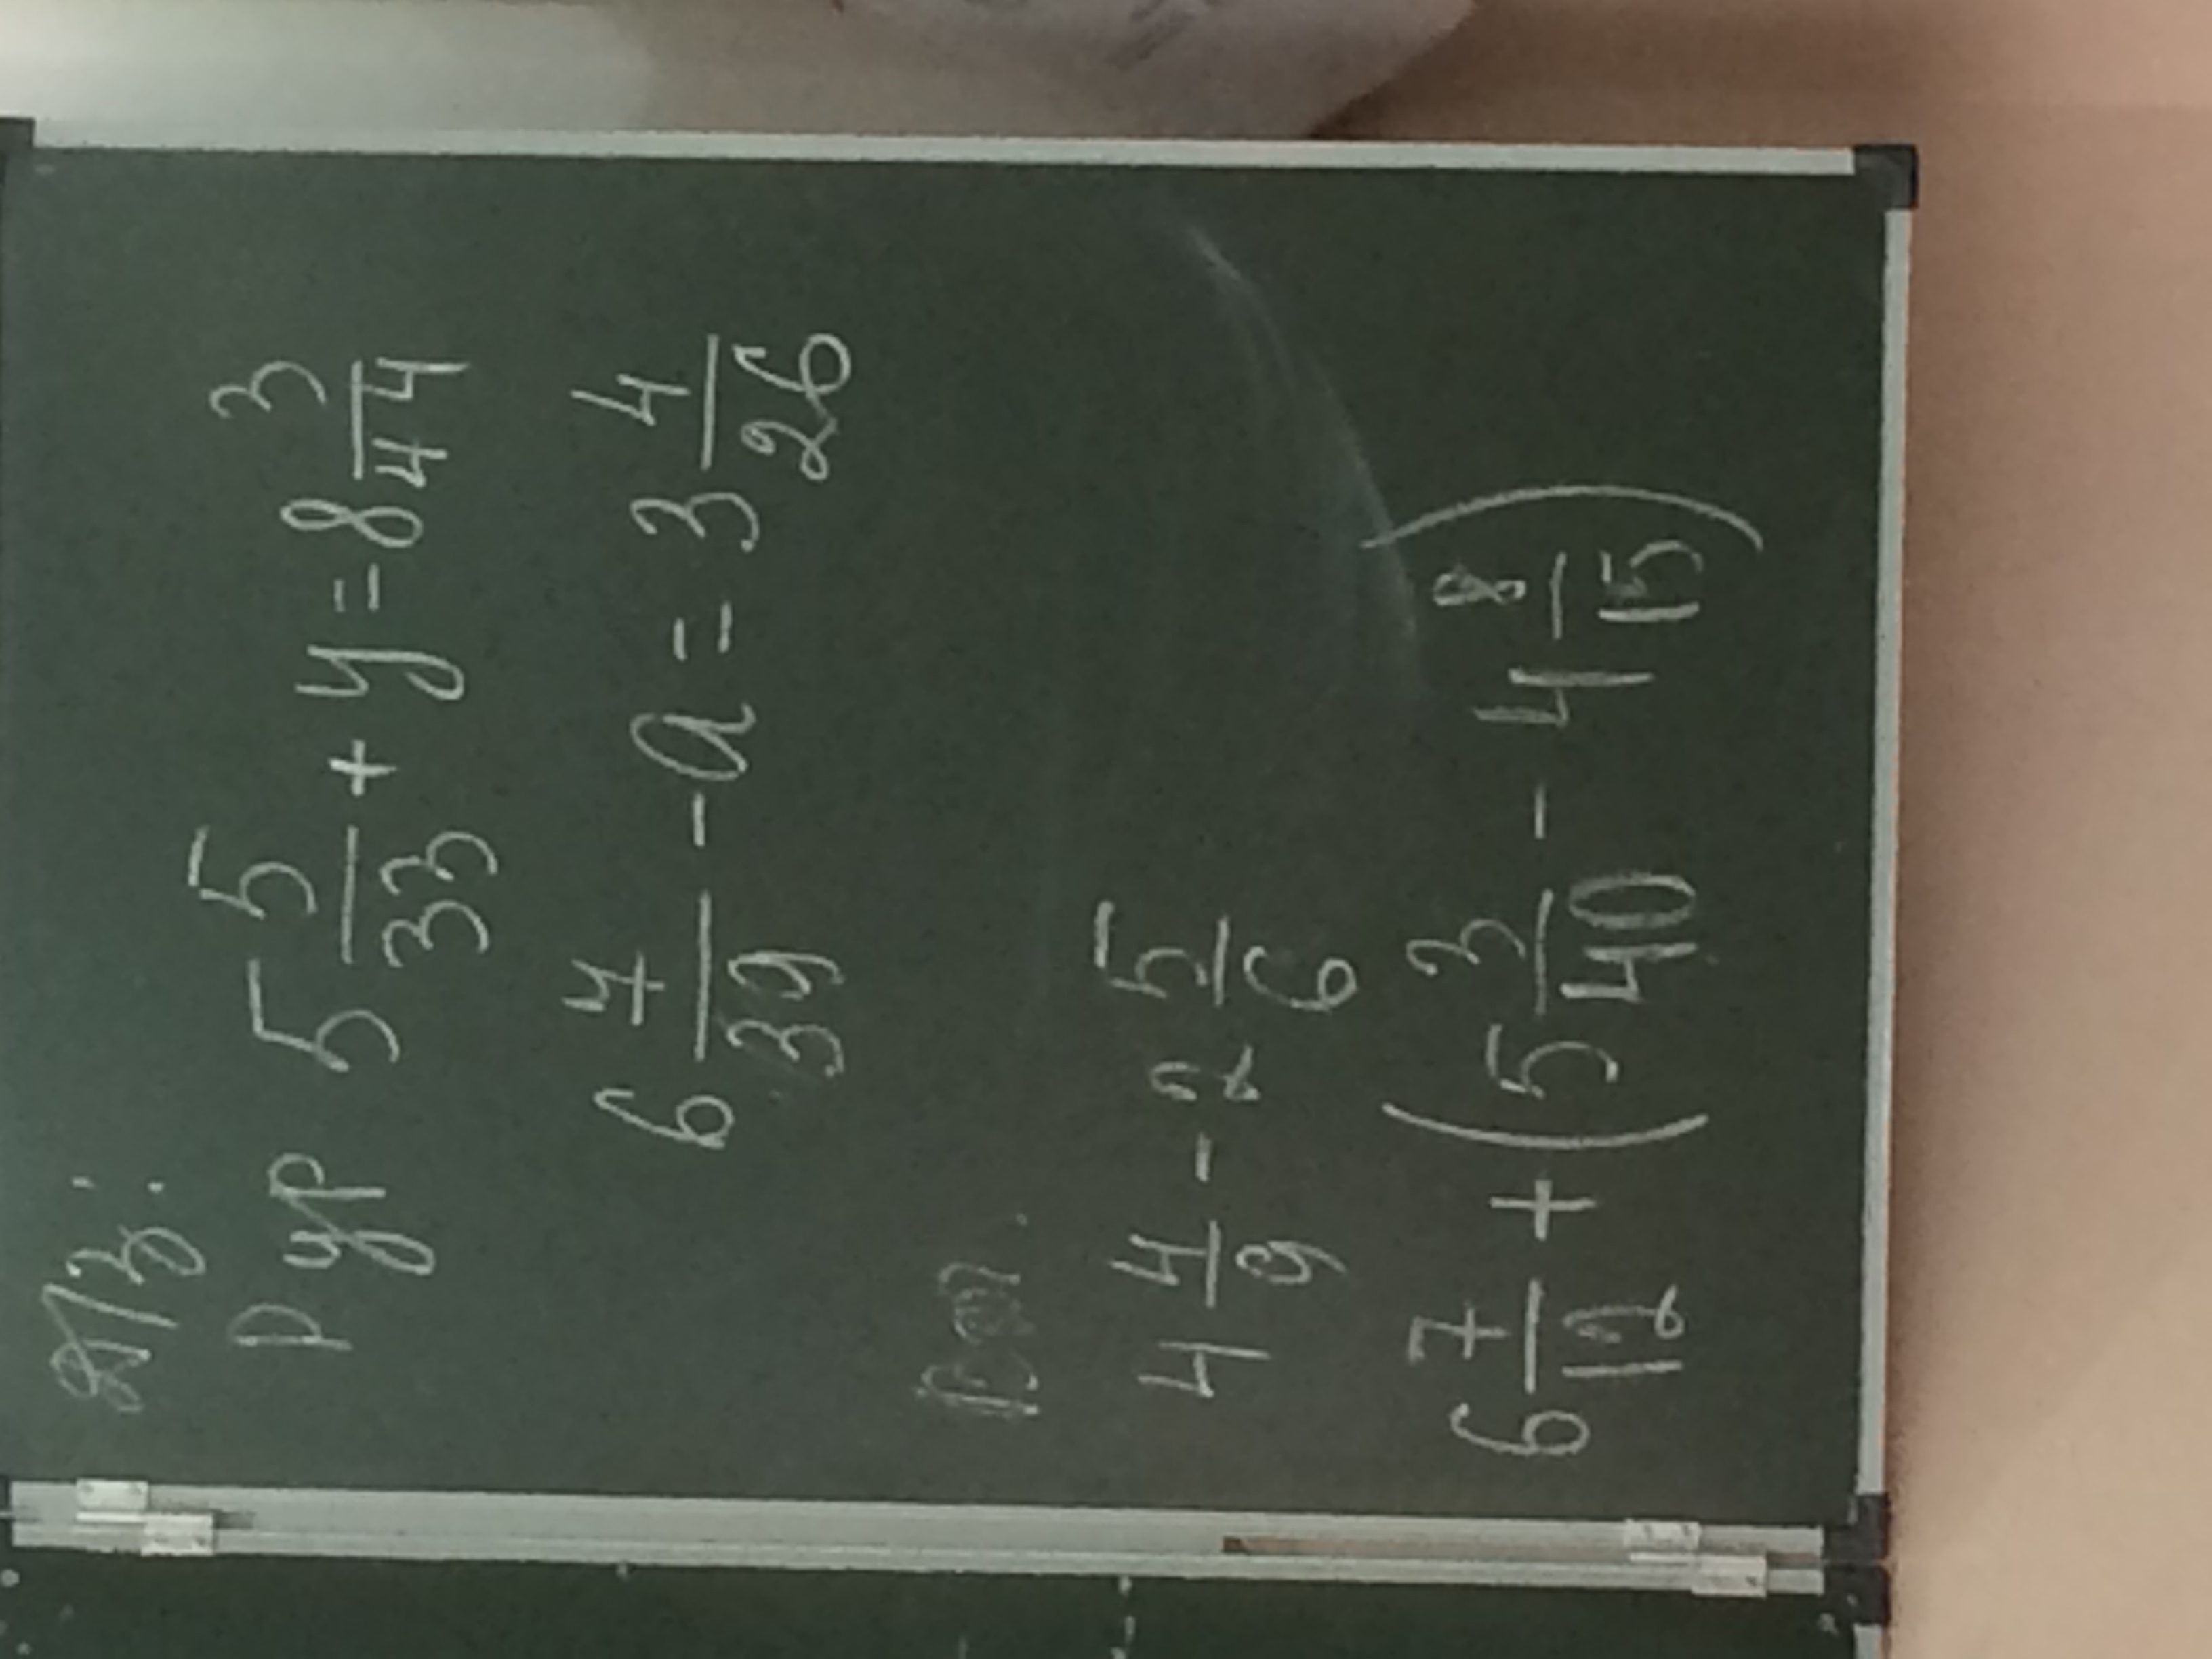 Д/з:
Р ур 5 5/33 + y = 8 3/44
6 7/39 - a = 3 4/26
4 4/9 - 2 5/6
6 7/12 + (5 3/40 - 4 8/15)